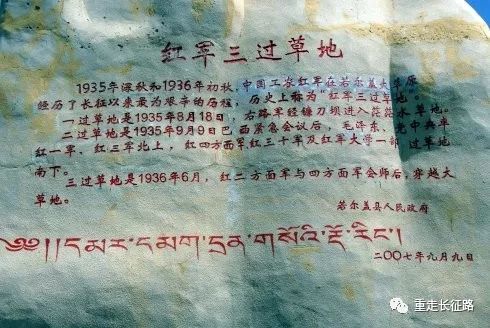 红军三过草地
1935年深秋和1936年初秋,中国工农红军在若尔盖大草原
经历了长征以来最为艰辛的历程,历史上称为"红军三过草地"。
一过草地是1935年8月18日,右路军经腊子塘进入茫茫水草地。
二过草地是1935年9月9日巴西紧急会议后,毛泽东、党中央率
红一军、红三军北上,红四方面军红三十军及红军大学一部过草地
南下。
三过草地是1936年6月,红二方面军与四方面军会师后,穿越大
草地。
若尔盖县人民政府
༄༅།།དམར་དམག་དྲན་གསོའི་རྡོ་རིང་།
二〇〇七年九月九日
重走长征路